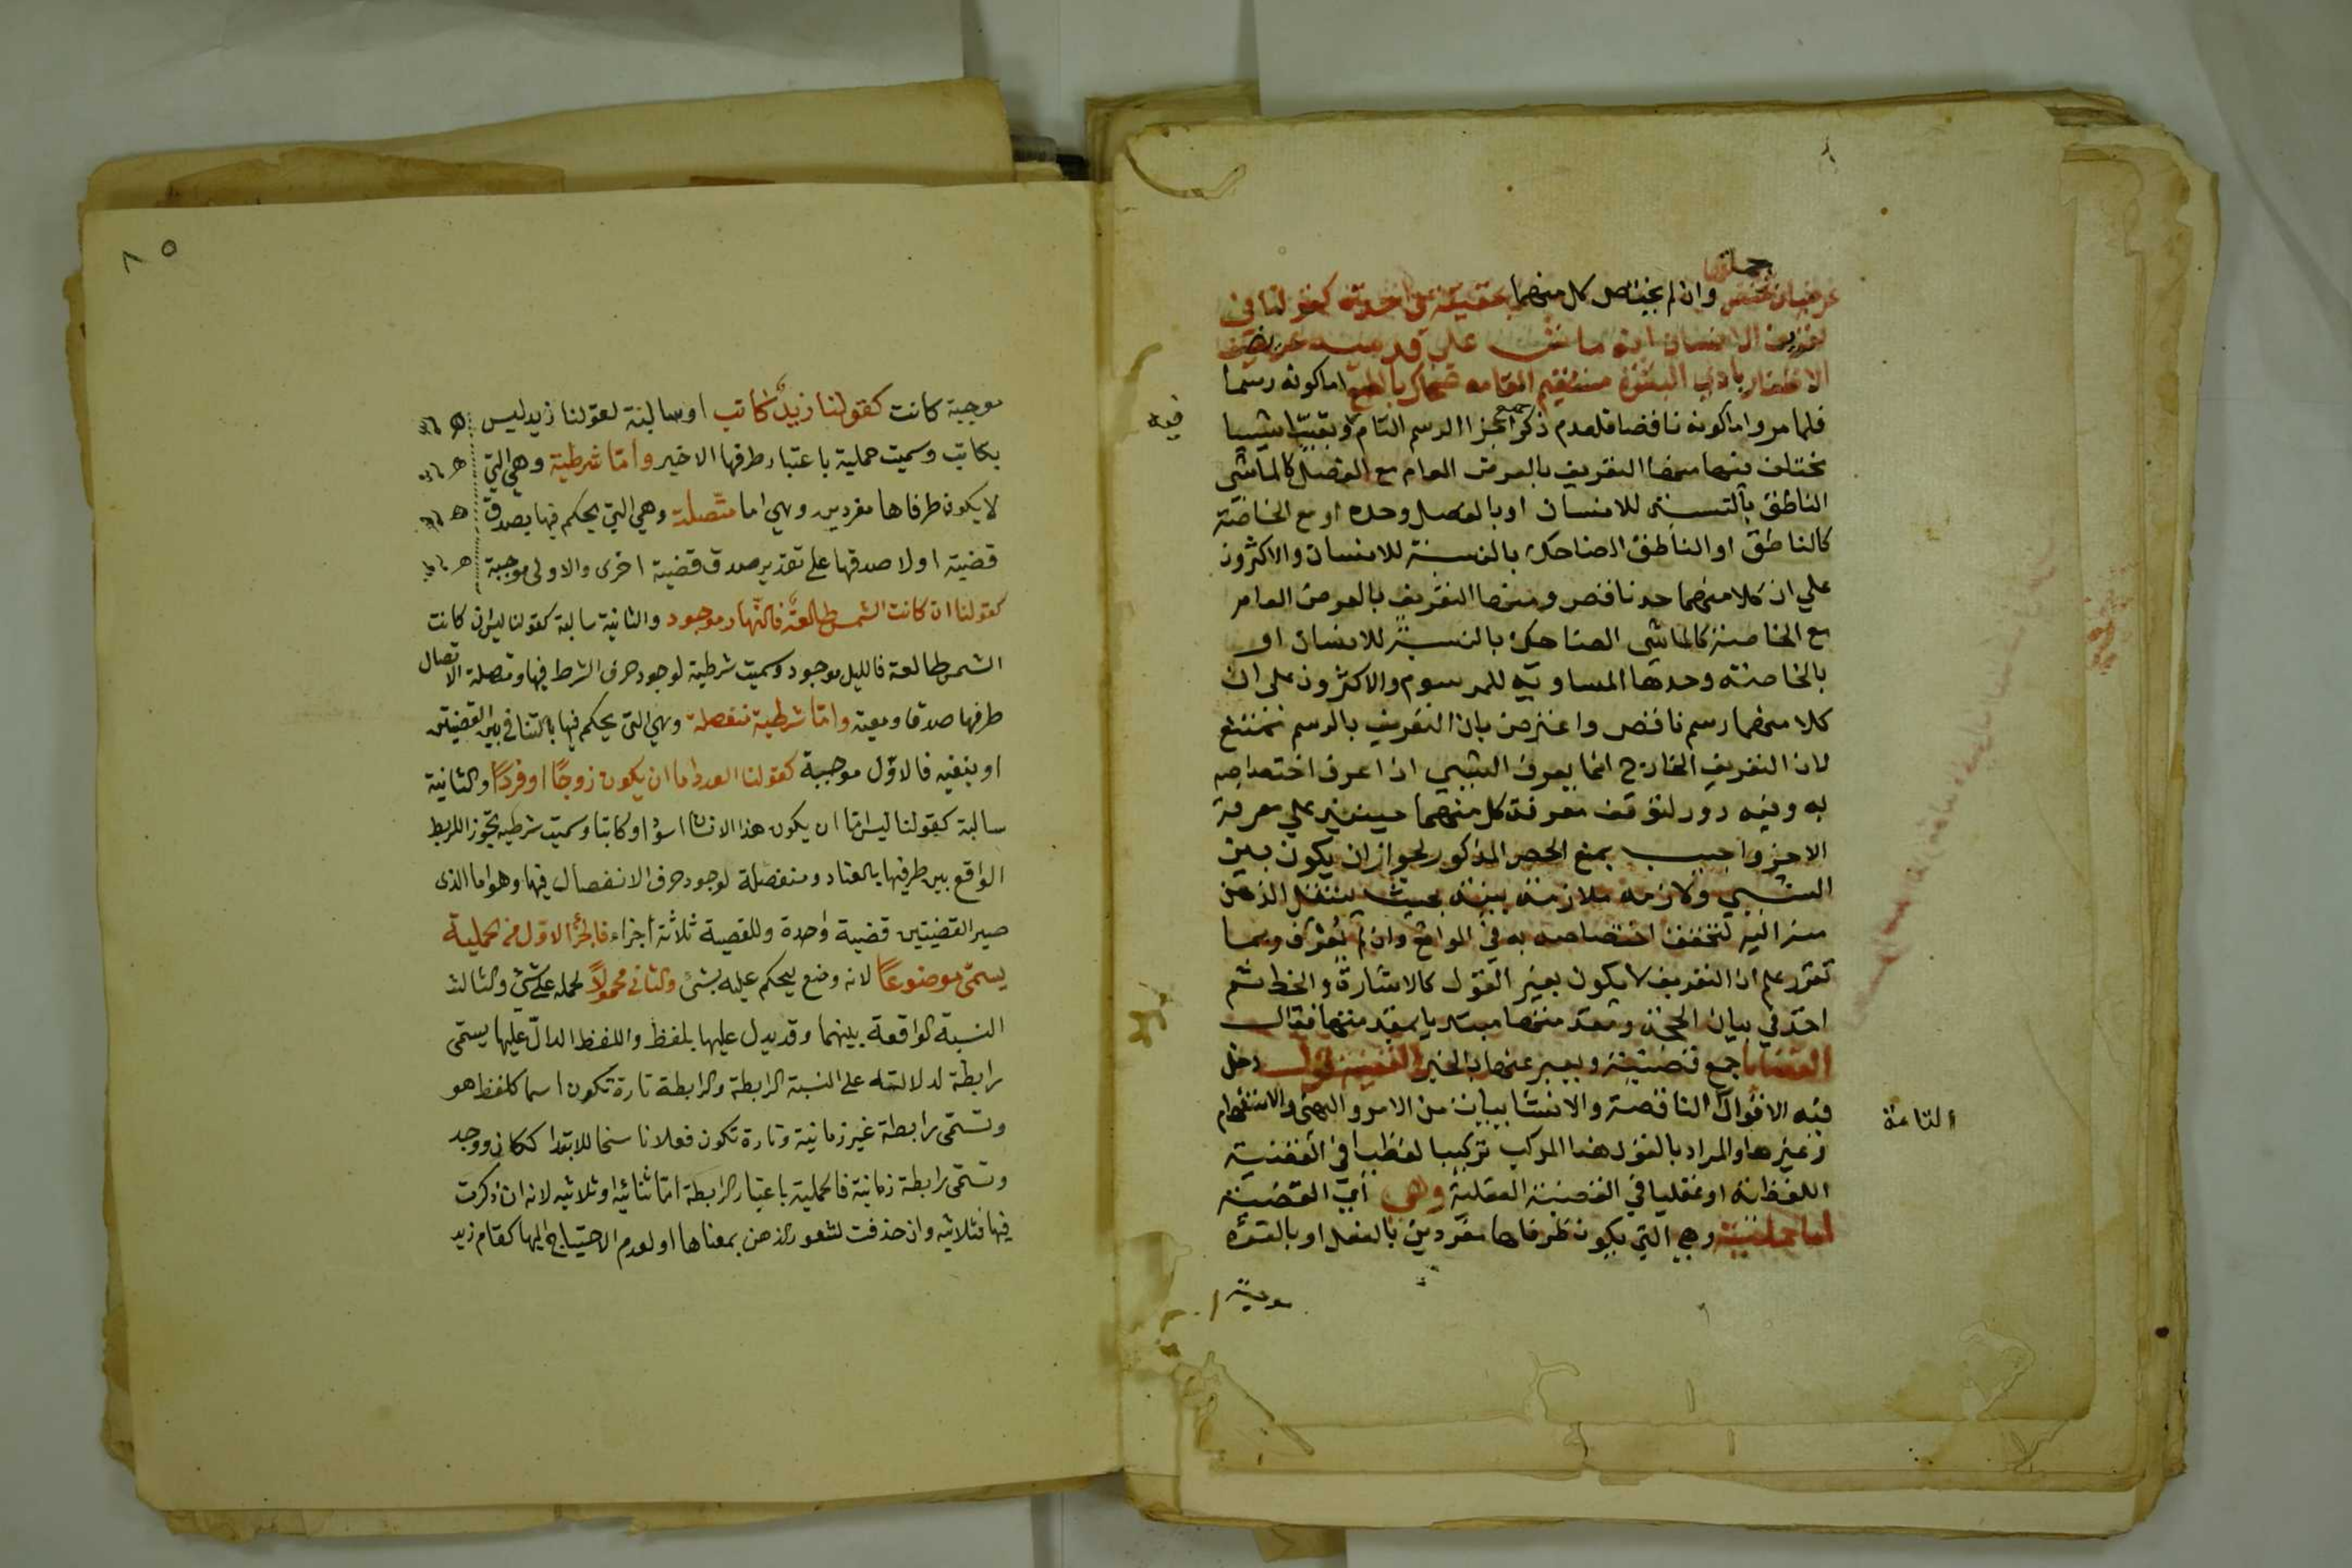 جملتها
عرضيات تختص وان لم يختص كل منهما بحقيقة واحدة كقولنا في
تعريف الانسان انه ماش على قدميه عريض
الاظفار بادي البشرة مستقيم القامه ضحاك بالطبع اما كونه رسما
فلما مر واما كونه ناقصا فلعدم ذكر جميع اجزا الرسم التام وبقي اشيا
فيه
تختلف فيها منها التعريف بالعرض العام مع الفصل كالماشي
الناطق بالنسبة للانسان او بالفصل وحده او مع الخاصة
كالناطق او الناطق الضاحك بالنسبة للانسان والاكثرون
علي ان كلا منهما حد ناقص ومنها التعريف بالعرض العام
مع الخاصة كالماشي الضاحك بالنسبة للانسان او
بالخاصة وحدها المساوية للمرسوم والاكثرون على ان
كلا منهما رسم ناقص واعترض بان التعريف بالرسم ممتنع
لان التعريف الخارج انما يعرف الشي اذا عرف اختصاصه
به وفيه دور لتوقف معرفة كل منهما حينئذ علي معرفة
الاخر واجيب بمنع الحصر المذكور لجواز ان يكون بين
الشي ولازمه ملازمة بينة بحيث ينتقل الذهن
منه اليه لتحقق اختصاصه به في الواقع وان لم يعرف وبما
تقرر علم ان التعريف لا يكون بغير القول كالاشارة والخط ثم
اخذ في بيان الحجة ومقدمتها مبتديا بمقدمتها فقال
القضايا جمع قضية ويعبر عنها بالخبر القضية قول دخل
فيه الاقوال الناقصة والانشاييات من الامر والنهي والاستفهام
التامة
وغيرها والمراد بالقول هنا المركب تركيبا لفظيا في القضية
اللفظية او عقليا في القضية العقلية وهي اي القضية
اما حملية وهي التي يكون طرفاها مفردين بالفعل او بالقوة
موجبة
٨٥
موجبة كانت كقولنا زيد كاتب او سالبة لقولنا زيد ليس
بكاتب وسميت حملية باعتبار طرفها الاخير وأما شرطية وهي التي
لا يكون طرفاها مفردين وهي اما متّصلة وهي التي يحكم فيها بصدق
قضية او لا صدقها على تقدير صدق قضية اخرى والاولى موجبة
كقولنا ان كانت الشمس طالعة فالنّهار موجود والثانية سالبة كقولنا ليس ان كانت
الشمس طالعة فالليل موجود وسميت شرطية لوجود حرف الشرط فيها ومتصلة لاتصال
طرفيها صدقا ومعية واما شرطية منفصلة وهي التي يحكم فيها بالتنافي بين القضيتين
او بنفيه فالاوّل موجبة كقولنا العدد اما ان يكون زوجًا او فردًا والثانية
سالبة كقولنا ليس امّا ان يكون هذا الانسان اسود او كاتبا وسميت شرطية تجوز اللربط
الواقع بين طرفيها بالعناد ومنفصلة لوجود حرف الانفصال فيها وهو اما الذى
صير القضيتين قضية واحدة وللقضية ثلاثة أجزاء فالجزء الاوّل من الحملية
يسمّى موضوعًا لانه وضع ليحكم عليه بشئ والثاني محمولًا لحمله على شئ والثالث
النسبة الواقعة بينهما وقد يدل عليها بلفظ واللفظ الدالّ عليها يسمى
رابطة لدلالته على النسبة الرابطة والرابطة تارة تكون اسما كلفظ هو
وتسمّى رابطة غير زمانية وتارة تكون فعلا ناسخا للابتدا ككان ووجد
وتسمّى رابطة زمانية فالحملية باعتبار الرابطة امّا ثنائية او ثلاثيه لانه ان ذكرت
فيها فثلاثية وان حذفت لشعور الذهن بمعناها او لعدم الاحتياج اليها كقام زيد